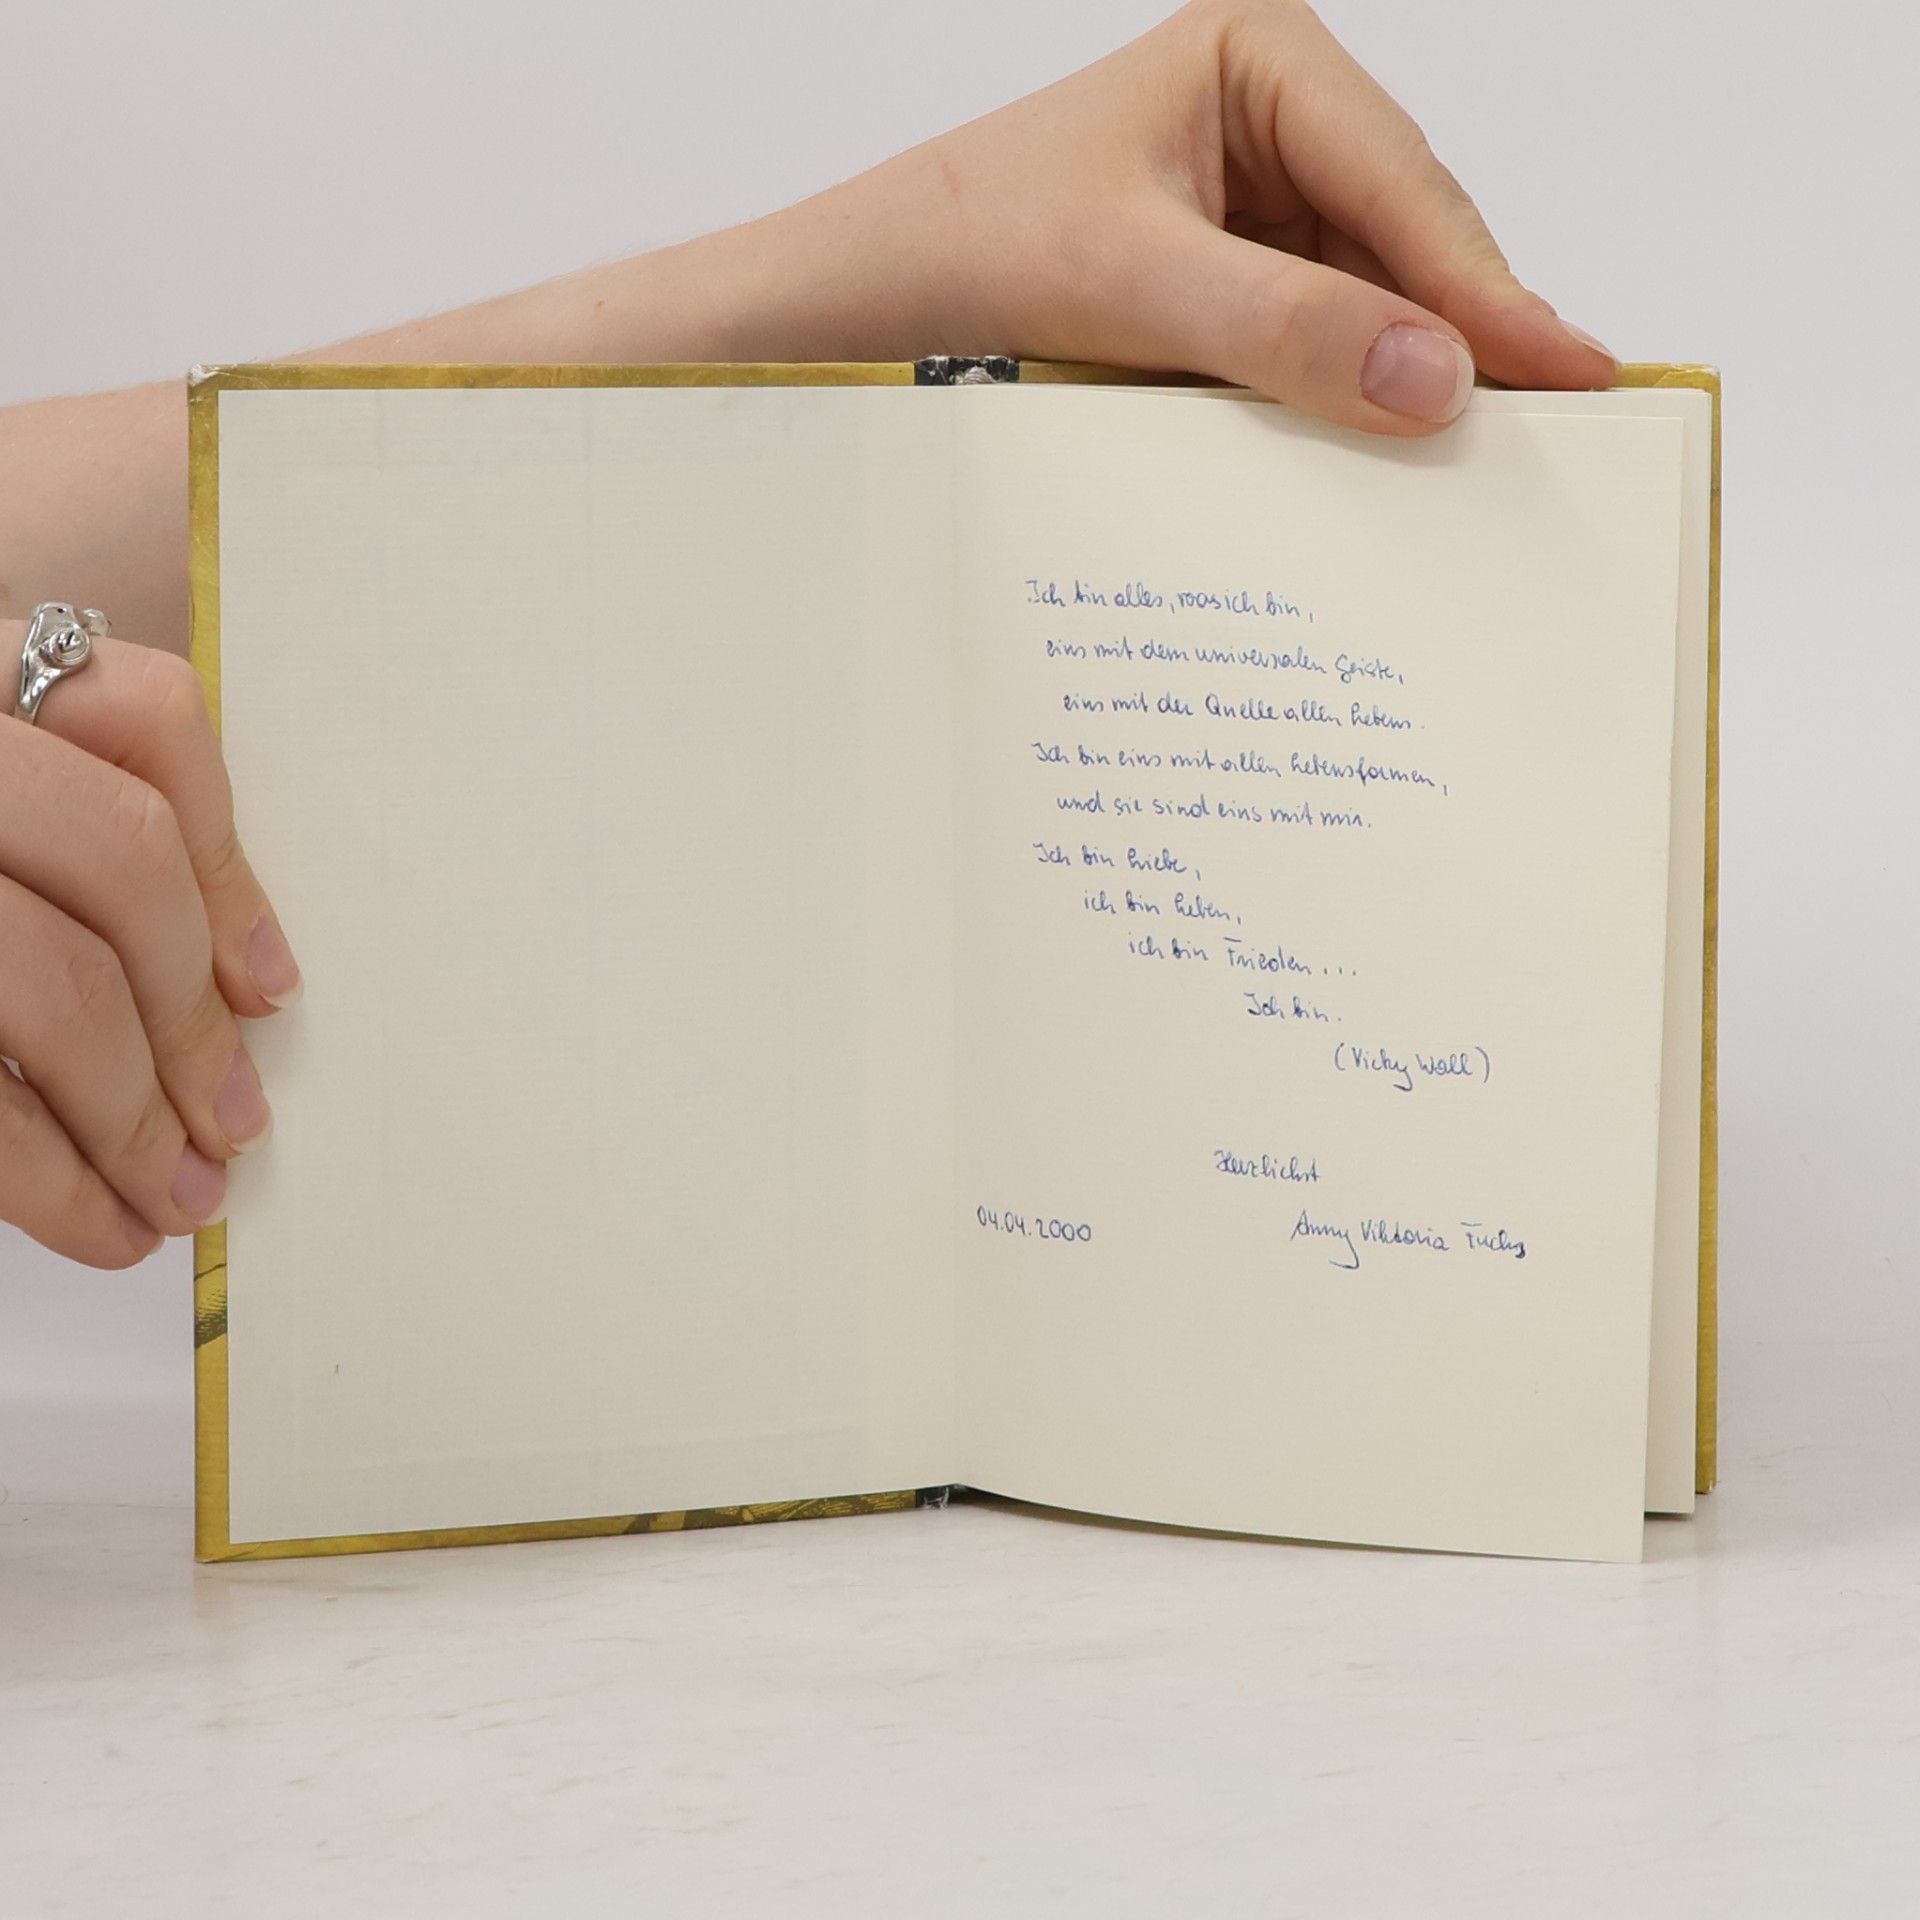 Ich bin alles, was ich bin,
eins mit dem universalen Geiste,
eins mit der Quelle allen Lebens.
Ich bin eins mit allen Lebensformen,
und sie sind eins mit mir.
Ich bin Liebe,
ich bin Leben,
ich bin Frieden...
Ich bin.
(Vicky Wall)
Herzlichst
04.04.2000 Anny Viktoria Fuchs